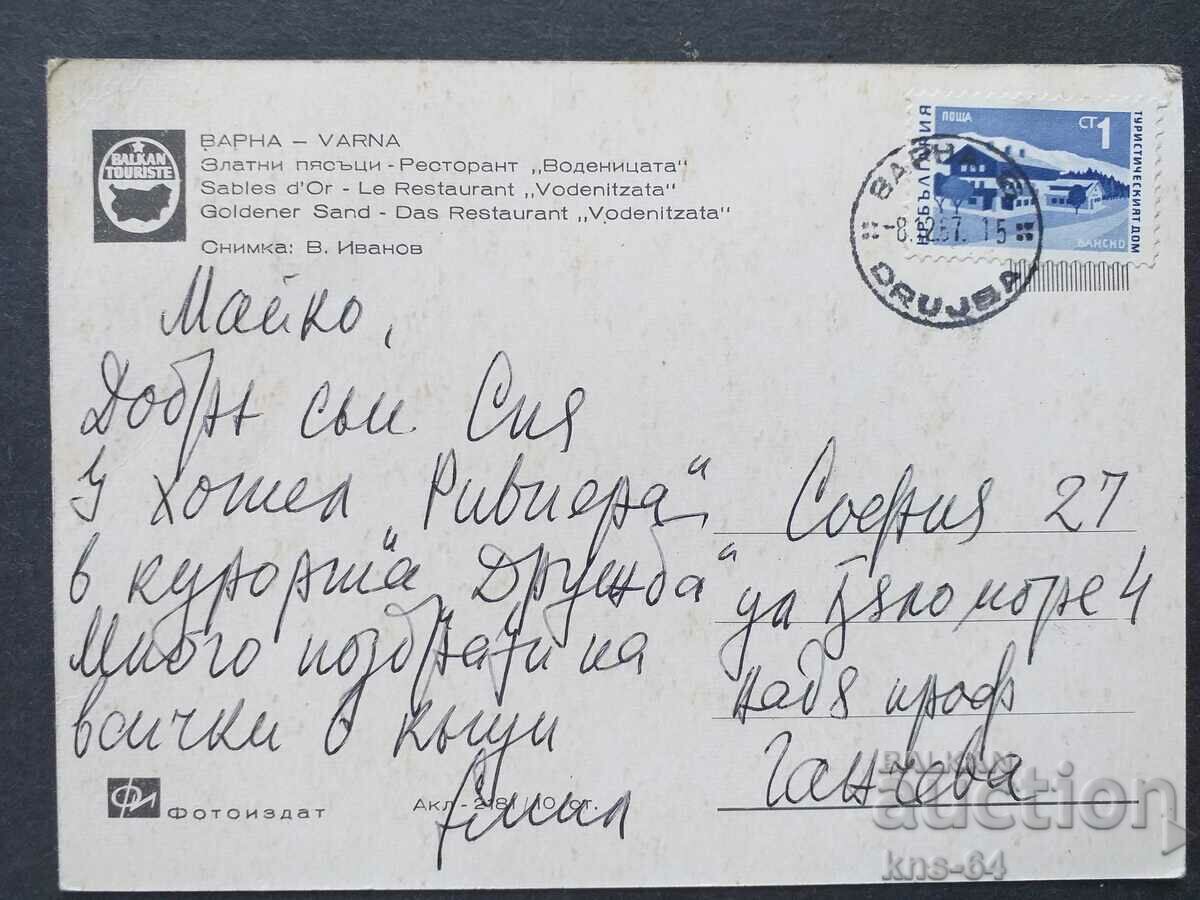 BALKAN
TOURISTE
ВАРНА – VARNA
Златни пясъци - Ресторант „Воденицата"
Sables d'Or - Le Restaurant „Vodenitzata"
Goldener Sand - Das Restaurant „Vodenitzata"
Снимка: В. Иванов
НР БЪЛГАРИЯ
ПОЩА
СТ 1
ТУРИСТИЧЕСКИЯТ ДОМ
БАНСКО
ВАРНА
67. 15
DRUJBA
Майко,
Добре съм. Сия
У хотел „Ривиера"
в курорта „Дружба"
Много поздрави на
всички в къщи
Емил
София 27
ул Бяло море 4
проф
Ганчева
ФИ Фотоиздат
Акл - 2181/10 ст.
BALKAN
auction
kns-64